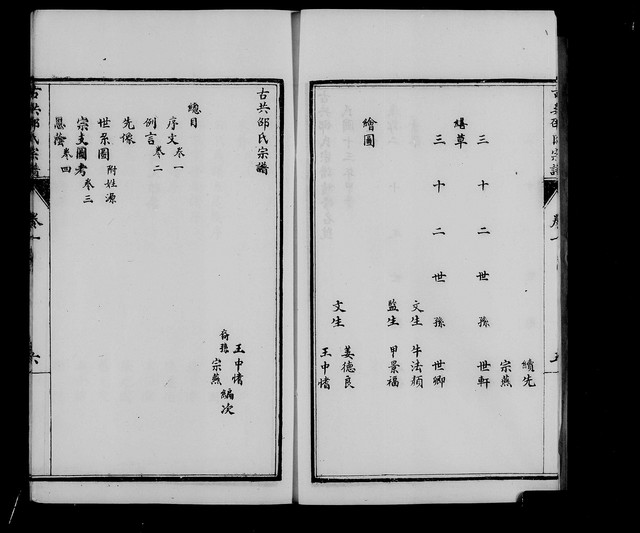 續先
宗燕
三十二世孫 世軒
繕草
三十二世孫 世卿
文生 牛法頻
監生 甲景福
繪圖
文生 姜德良
王中㥞
古共邵氏宗譜
卷一
古共邵氏宗譜
王中㥞
裔孫 宗燕 編次
總目
序文 卷一
例言 卷二
先像
世系圖 附姓源
宗支圖考 卷三
恩蔭 卷四
古共邵氏宗譜
卷一
六